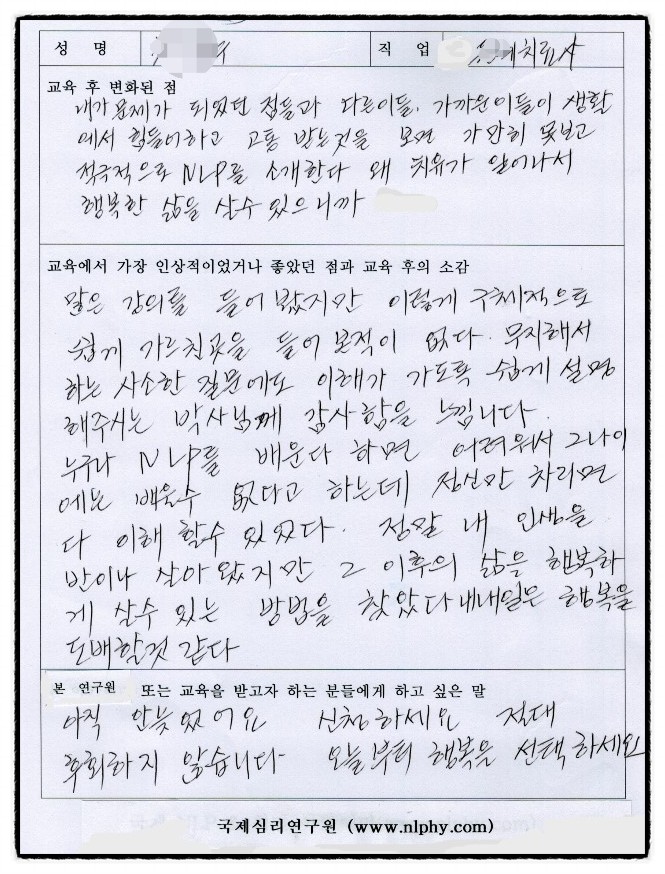 성 명 직 업 치료사
교육 후 변화된 점
내가 문제가 되었던 점들과 다른이들, 가까운이들이 생활
에서 힘들어하고 고통 받는것을 보면 가만히 못보고
적극적으로 NLP를 소개한다 왜 치유가 일어나서
행복한 삶을 살수 있으니까
교육에서 가장 인상적이었거나 좋았던 점과 교육 후의 소감
많은 강의를 들어 봤지만 이렇게 구체적으로
쉽게 가르친곳을 들어 본적이 없다. 무지해서
하는 사소한 질문에도 이해가 가도록 쉽게 설명
해주시는 박사님께 감사함을 느낍니다.
누구나 NLP를 배운다 하면 어려워서 그나이
에는 배울수 없다고 하는데 정신만 차리면
다 이해 할수 있었다. 정말 내 인생을
반이나 살아 왔지만 그 이후의 삶을 행복하
게 살수 있는 방법을 찾았다 내내일은 행복을
도배할것 같다
본 연구원 또는 교육을 받고자 하는 분들에게 하고 싶은 말
아직 안늦었어요 신청하세요 절대
후회하지 않습니다 오늘부터 행복을 선택하세요
국제심리연구원 (www.nlphy.com)